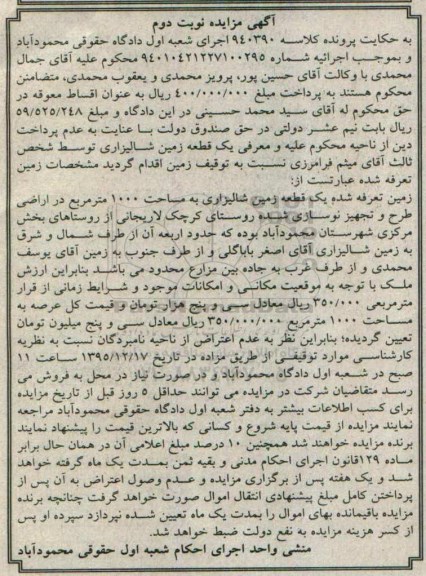 آگهی مزایده نوبت دوم
به حکایت پرونده کلاسه ۹۴۰۳۹۰ اجرای شعبه اول دادگاه حقوقی محمودآباد
و بموجب اجرائیه شماره ۹۴۰۱۰۴۲۱۲۲۷۱۰۰۲۹۵ محکوم علیه آقای جمال
محمدی با وکالت آقای حسین پور، پرویز محمدی و یعقوب محمدی، متضامنن
محکوم هستند به پرداخت مبلغ ۴۰۰/۰۰۰/۰۰۰ ریال به عنوان اقساط معوقه در
حق محکوم له آقای سید محمد حسینی در این دادگاه و مبلغ ۵۹/۵۲۵/۲۴۸
ریال بابت نیم عشر دولتی در حق صندوق دولت با عنایت به عدم پرداخت
دین از ناحیه محکوم علیه و معرفی یک قطعه زمین شالیزاری توسط شخص
ثالث آقای میثم فرامرزی نسبت به توقیف زمین اقدام گردید مشخصات زمین
تعرفه شده عبارتست از:
زمین تعرفه شده یک قطعه زمین شالیزاری به مساحت ۱۰۰۰ مترمربع در اراضی
طرح و تجهیز نوسازی شده روستای کرچک لاریجانی از روستاهای بخش
مرکزی شهرستان محمودآباد بوده که حدود اربعه آن از طرف شمال و شرق
به زمین شالیزاری آقای اصغر باباگلی و از طرف جنوب به زمین آقای یوسف
محمدی و از طرف غرب به جاده بین مزارع محدود می باشد بنابراین ارزش
ملک با توجه به موقعیت مکانی و امکانات موجود و شرایط زمانی از قرار
مترمربعی ۳۵۰/۰۰۰ ریال معادل سی و پنج هزار تومان و قیمت کل عرصه به
مساحت ۱۰۰۰ مترمربع ۳۵۰/۰۰۰/۰۰۰ ریال معادل سی و پنج میلیون تومان
تعیین گردیده؛ بنابراین نظر به عدم اعتراض از ناحیه نامبردگان نسبت به نظریه
کارشناسی موارد توقیفی از طریق مزاده در تاریخ ۱۳۹۵/۱۲/۱۷ ساعت ۱۱
صبح در شعبه اول دادگاه محمودآباد و در صورت نیاز در محل به فروش می
رسد متقاضیان شرکت در مزایده می توانند حداقل ۵ روز قبل از تاریخ مزایده
برای کسب اطلاعات بیشتر به دفتر شعبه اول دادگاه حقوقی محمودآباد مراجعه
نمایند مزایده از قیمت پایه شروع و کسانی که بالاترین قیمت را پیشنهاد نمایند
برنده مزایده خواهند شد همچنین ۱۰ درصد مبلغ اعلامی آن در همان حال برابر
ماده ۱۲۹قانون اجرای احکام مدنی و بقیه ثمن بمدت یک ماه گرفته خواهد
شد و یک هفته پس از برگزاری مزایده و عدم وصول اعتراض به آن پس از
پرداختن کامل مبلغ پیشنهادی انتقال اموال صورت خواهد گرفت چنانچه برنده
مزایده باقیمانده بهای اموال را بمدت یک ماه تعیین شده نپردازد سپرده او پس
از کسر هزینه مزایده به نفع دولت ضبط خواهد شد.
منشی واحد اجرای احکام شعبه اول حقوقی محمودآباد